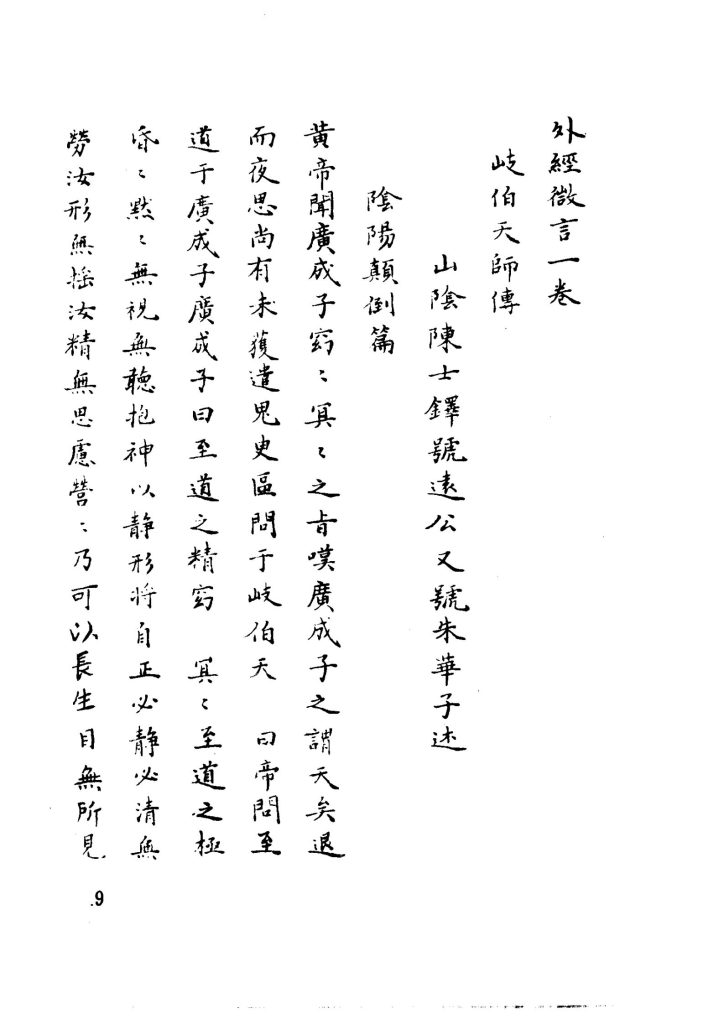 外經微言一卷
岐伯天師傳
山陰陳士鐸號遠公又號朱華子述
陰陽顛倒篇
黃帝聞廣成子窈〻冥〻之旨嘆廣成子之謂天矣退
而夜思尚有未獲遣鬼臾區問于岐伯天 曰帝問至
道于廣成子廣成子曰至道之精窈 冥〻至道之極
昏〻默〻無視無聽抱神以静形將自正必静必清無
勞汝形無搖汝精無思慮營〻乃可以長生目無所見
.9